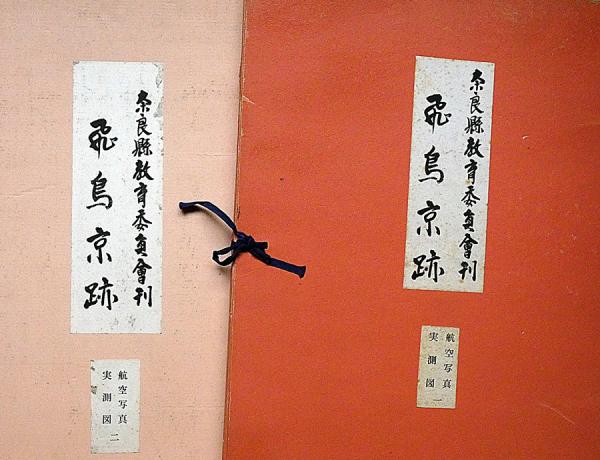 奈良縣教育委員會刊
飛鳥京跡
航空写真
実測図 一
奈良縣教育委員會刊
飛鳥京跡
航空写真
実測図 二